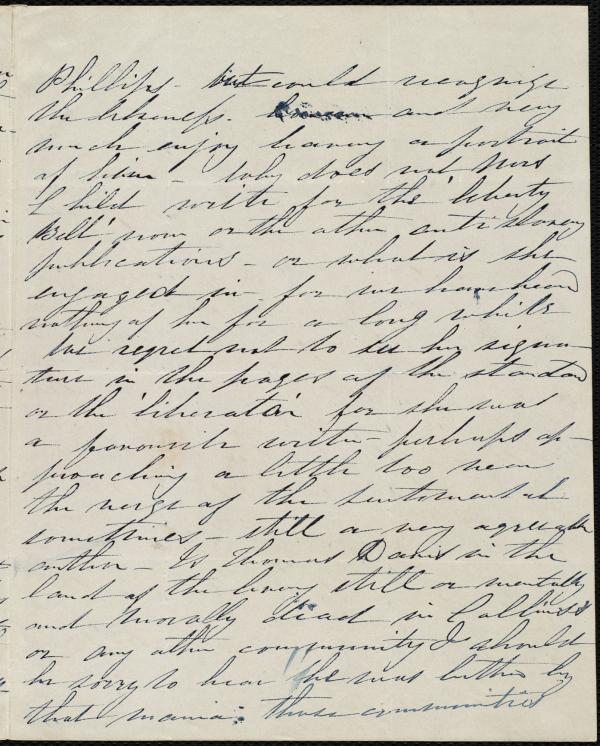 Phillips - but could recognize
the likeness. and very
much enjoy having a portrait
of him - Why does not Mrs
Child write for the 'liberty
Bell' now or the other anti slavery
publications - or what is she
engaged in for we have heard
nothing of her for a long while
We regret not to see her signa-
ture in the pages of the standard
or the 'liberator' for she was
a favourite writer - perhaps ap-
proaching a little too near
the verge of the sentimental
sometimes - still a very agreeable
author - Is Thomas Davis in the
land of the living still or mentally
and morally dead in Collins's
or any other community I should
be sorry to hear he was bitten by
that mania. those communities